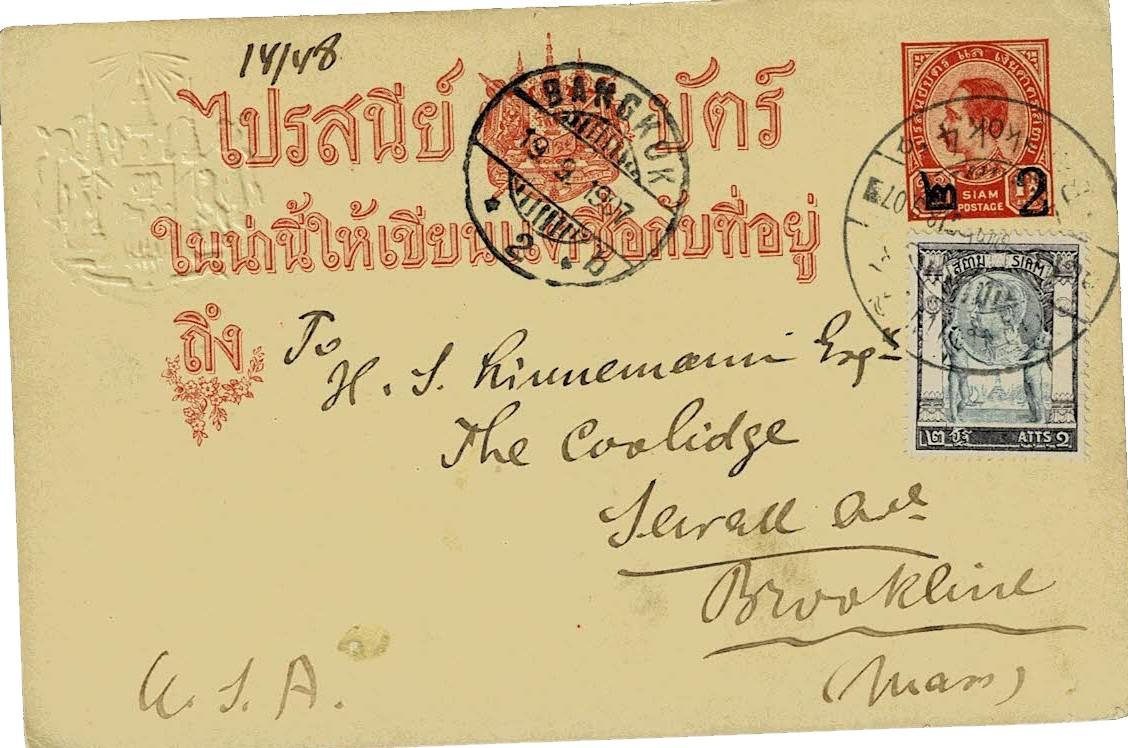 14/48
ไปรสนีย์ บัตร์
BANGKOK
19.9.1907
2 b
ในน่านี้ให้เขียน ชื่อกับที่อยู่
ถึง
To
H. S. Kinnemann Esq
The Coolidge
Sewall Ave
Brookline
(Mass)
U. S. A.
SIAM
POSTAGE
๒ 2
KOK 4
สยาม SIAM
๒ ATTS 2